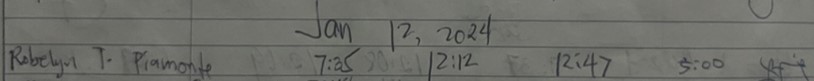 Jan 12, 2024
Robelyn T. Piamonte 7:35 12:12 12:47 5:00